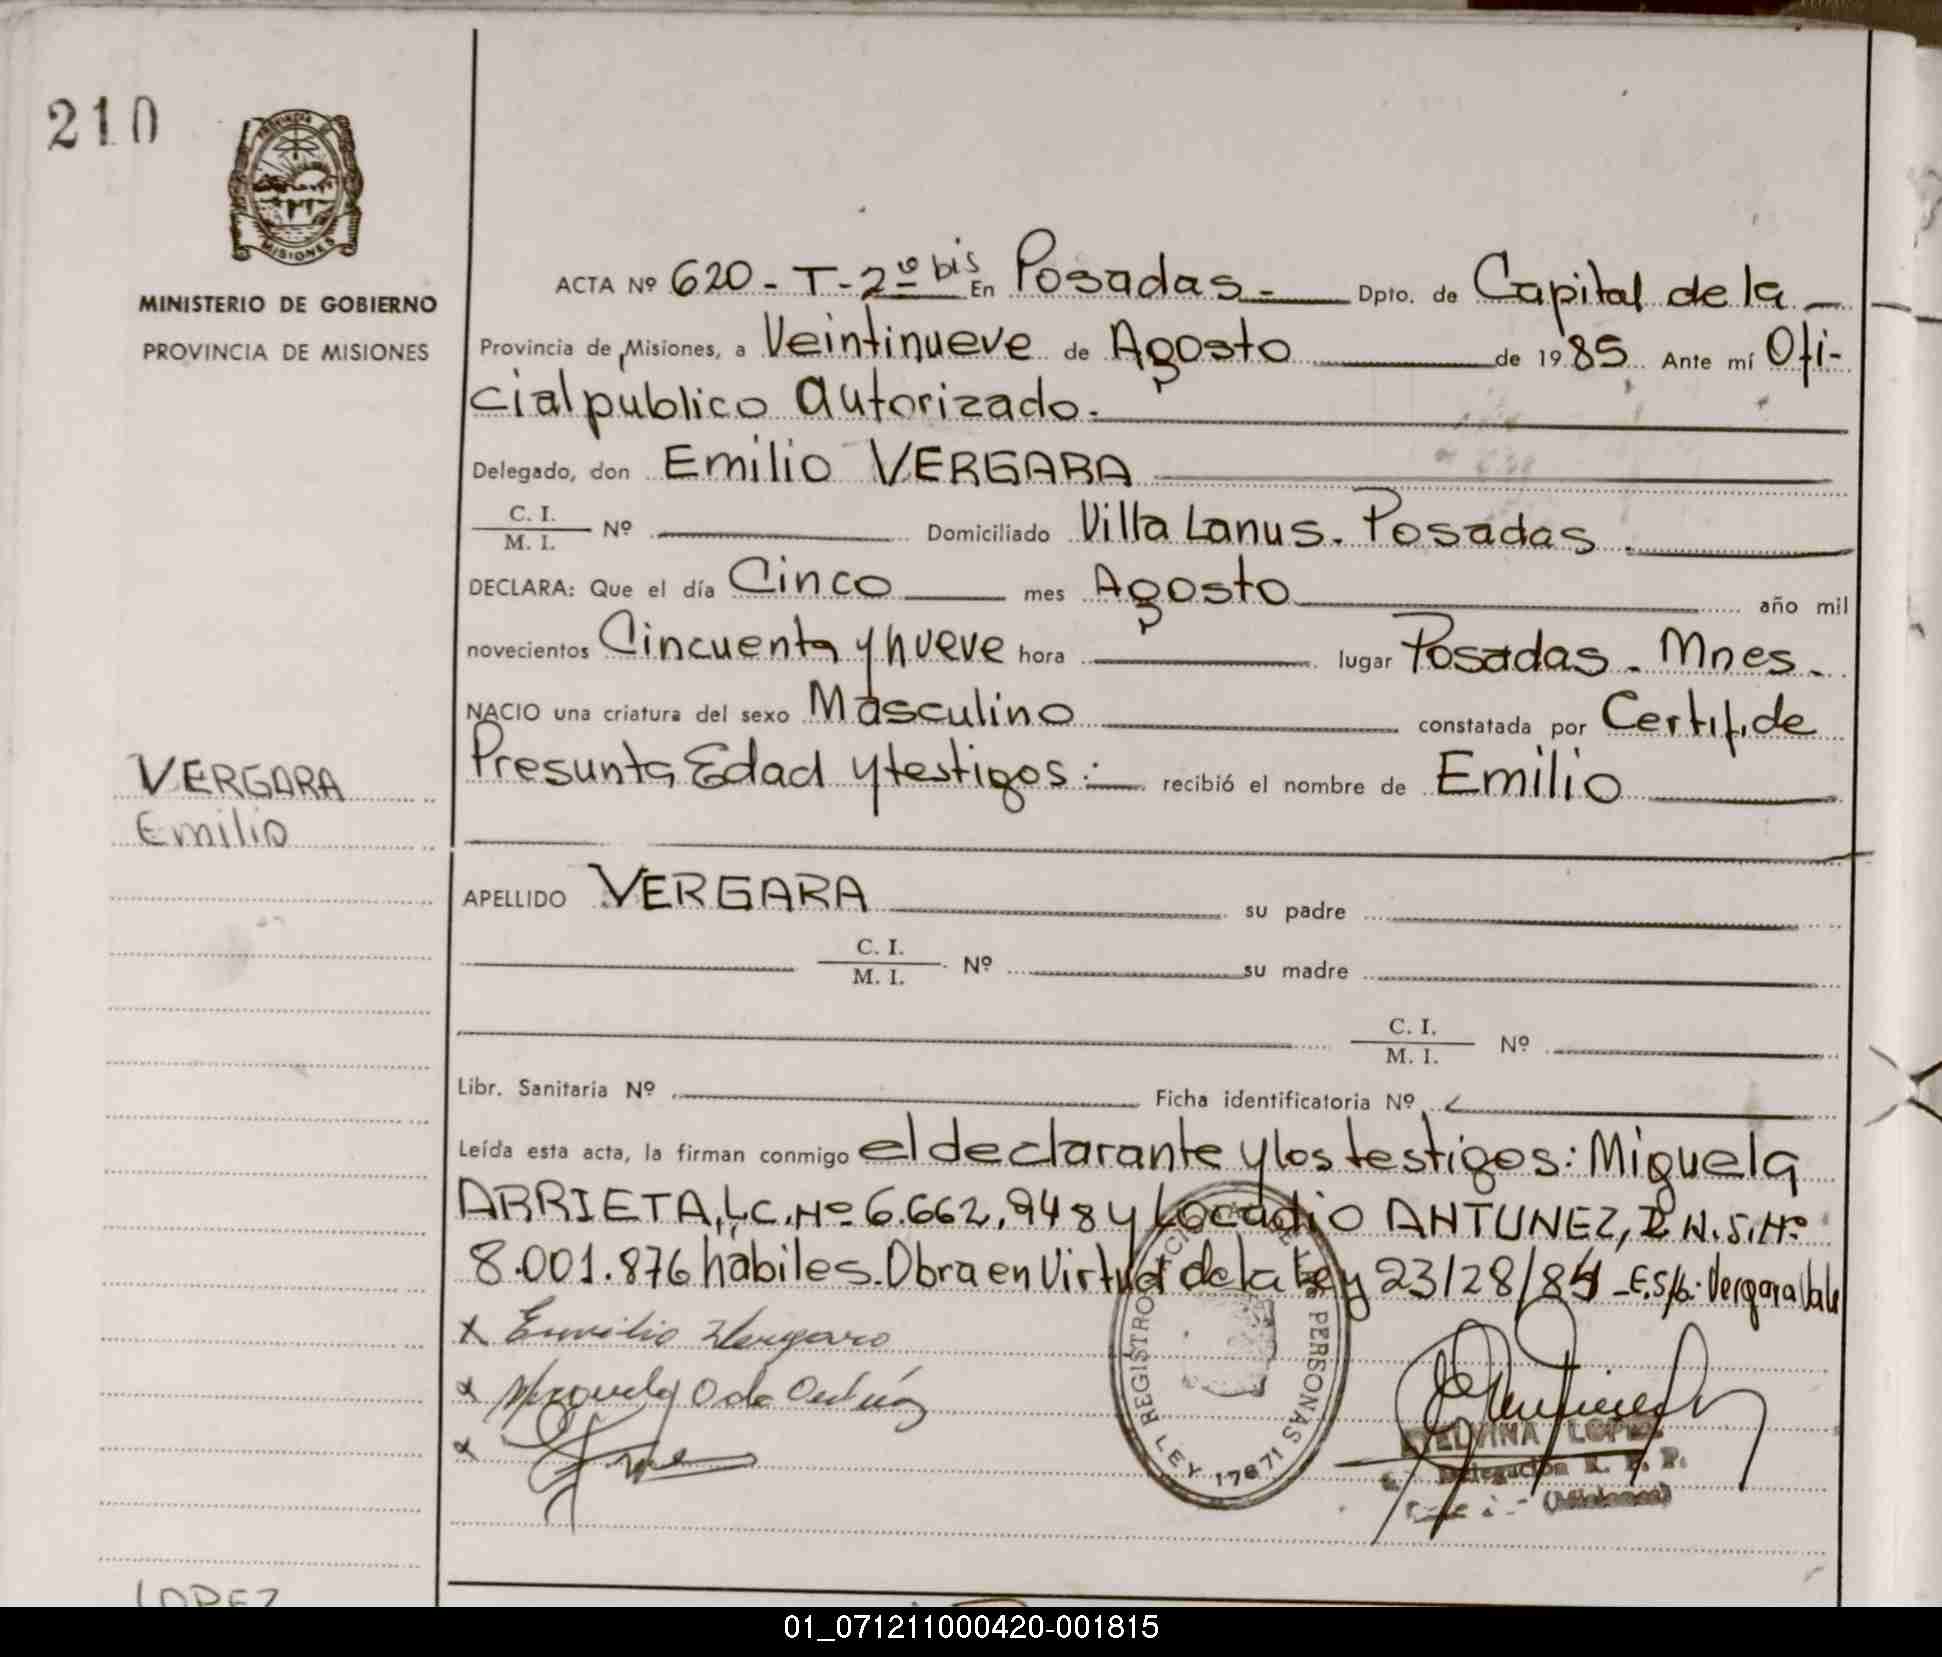 210
PROVINCIA
MISIONES
MINISTERIO DE GOBIERNO
PROVINCIA DE MISIONES
ACTA Nº 620 - T - 2º bis En Posadas - Dpto. de Capital de la
Provincia de Misiones, a Veintinueve de Agosto de 1985 Ante mí Ofi-
cial publico autorizado.
Delegado, don Emilio VERGARA
C. I.
M. I. Nº Domiciliado Villa Lanus. Posadas
DECLARA: Que el día Cinco mes Agosto año mil
novecientos Cincuenta y nueve hora lugar Posadas - Mnes.
NACIO una criatura del sexo Masculino constatada por Certif. de
Presunta Edad y testigos: recibió el nombre de Emilio
VERGARA
Emilio
APELLIDO VERGARA su padre
C. I.
M. I. Nº su madre
C. I.
M. I. Nº
Libr. Sanitaria Nº Ficha identificatoria Nº
Leída esta acta, la firman conmigo el declarante y los testigos: Miguela
ARRIETA, L.C. Nº 6.662.948 y Locadio ANTUNEZ, D.N.I. Nº
8.001.876 habiles. Obra en Virtud de la Ley 23/28/84 - E.S/b: Vergara Vale
x Emilio Vergara
x Miguela
x
REGISTRO PERSONAS LEY 17671
ELVINA LOPEZ
Delegación R. P. P.
(Misiones)
LOPEZ
01_071211000420-001815